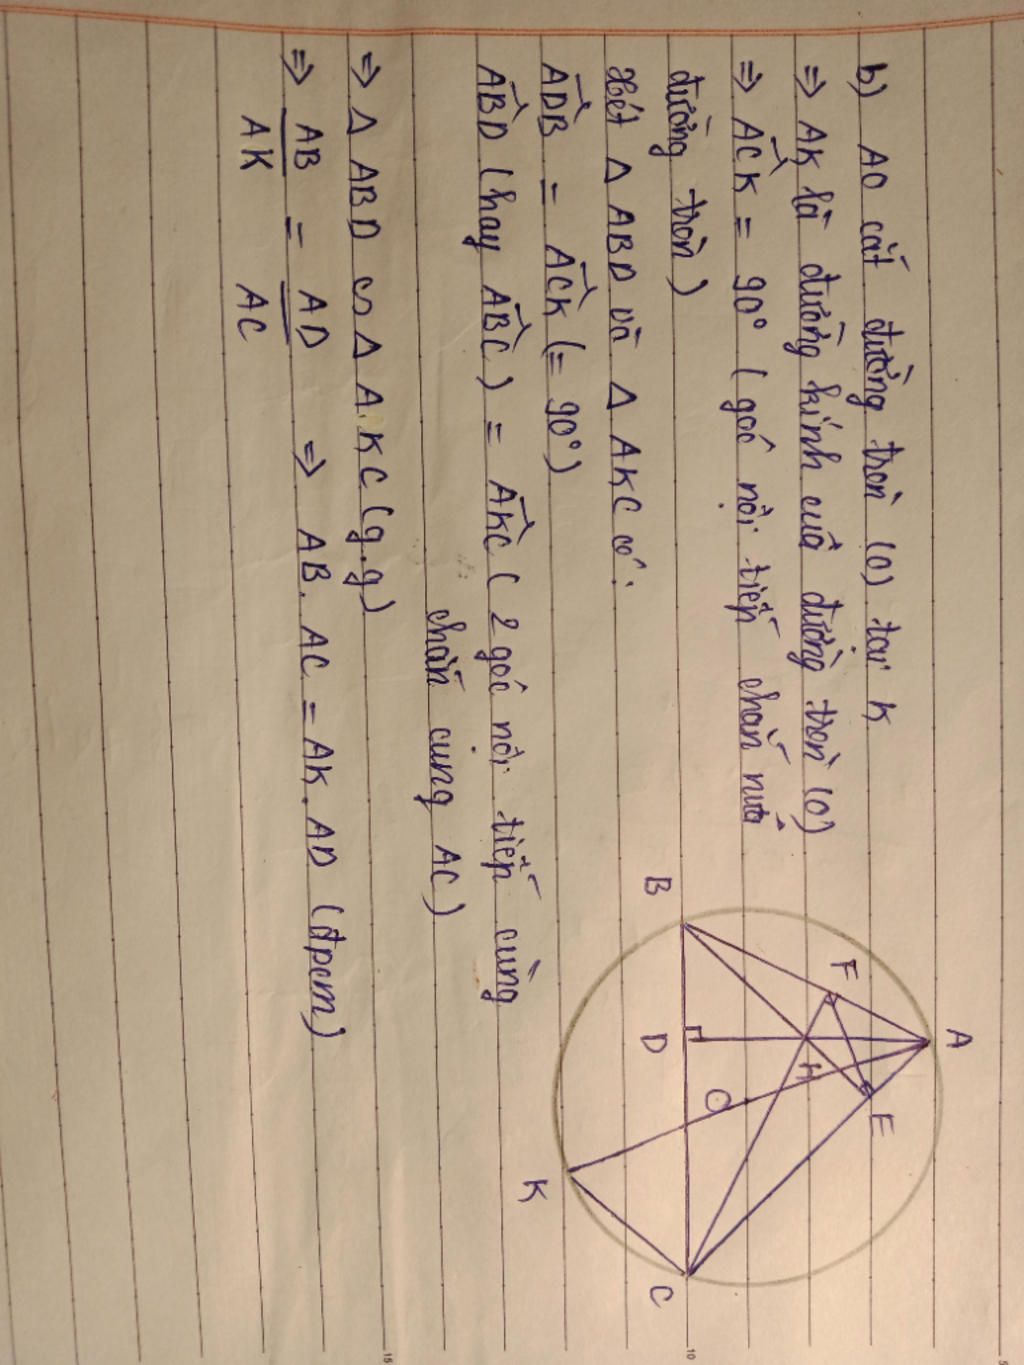 b) AO cắt đường tròn (O) tại K
⇒ AK là đường kính của đường tròn (O)
⇒ ACK = 90° (góc nội tiếp chắn nửa
đường tròn)
Xét Δ ABD và Δ AKC có:
ADB = ACK (= 90°)
ABD (hay ABC) = AKC (2 góc nội tiếp cùng
chắn cung AC)
⇒ Δ ABD ∽ Δ AKC (g.g)
⇒ AB/AK = AD/AC ⇒ AB. AC = AK. AD (đpcm)
A
E
F
H
B
D
O
C
K
5
10
15